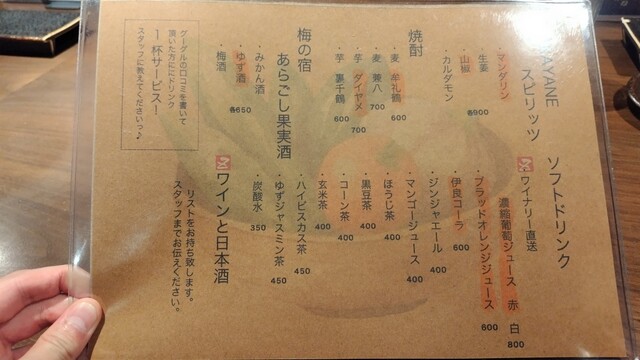 AYANE スピリッツ
・マンダリン
・生姜
・山椒
・カルダモン
各900
焼酎
・麦 牟礼鶴
600
・麦 兼八
700
・芋 ダイヤメ
700
・芋 裏千鶴
600
梅の宿
あらごし果実酒
・みかん酒
・ゆず酒
・梅酒
各650
グーグルの口コミを書いて
頂いた方にドリンク
1杯サービス!
スタッフに教えてくださいっ♪
ソフトドリンク
ワイナリー直送
濃縮葡萄ジュース 赤 白
800
・ブラッドオレンジジュース
600
・伊良コーラ
600
・ジンジャエール
400
・マンゴージュース
400
・ほうじ茶
400
・黒豆茶
400
・コーン茶
400
・玄米茶
400
・ハイビスカス茶
450
・ゆずジャスミン茶
450
・炭酸水
350
ワインと日本酒
リストをお持ち致します。
スタッフまでお伝えください。